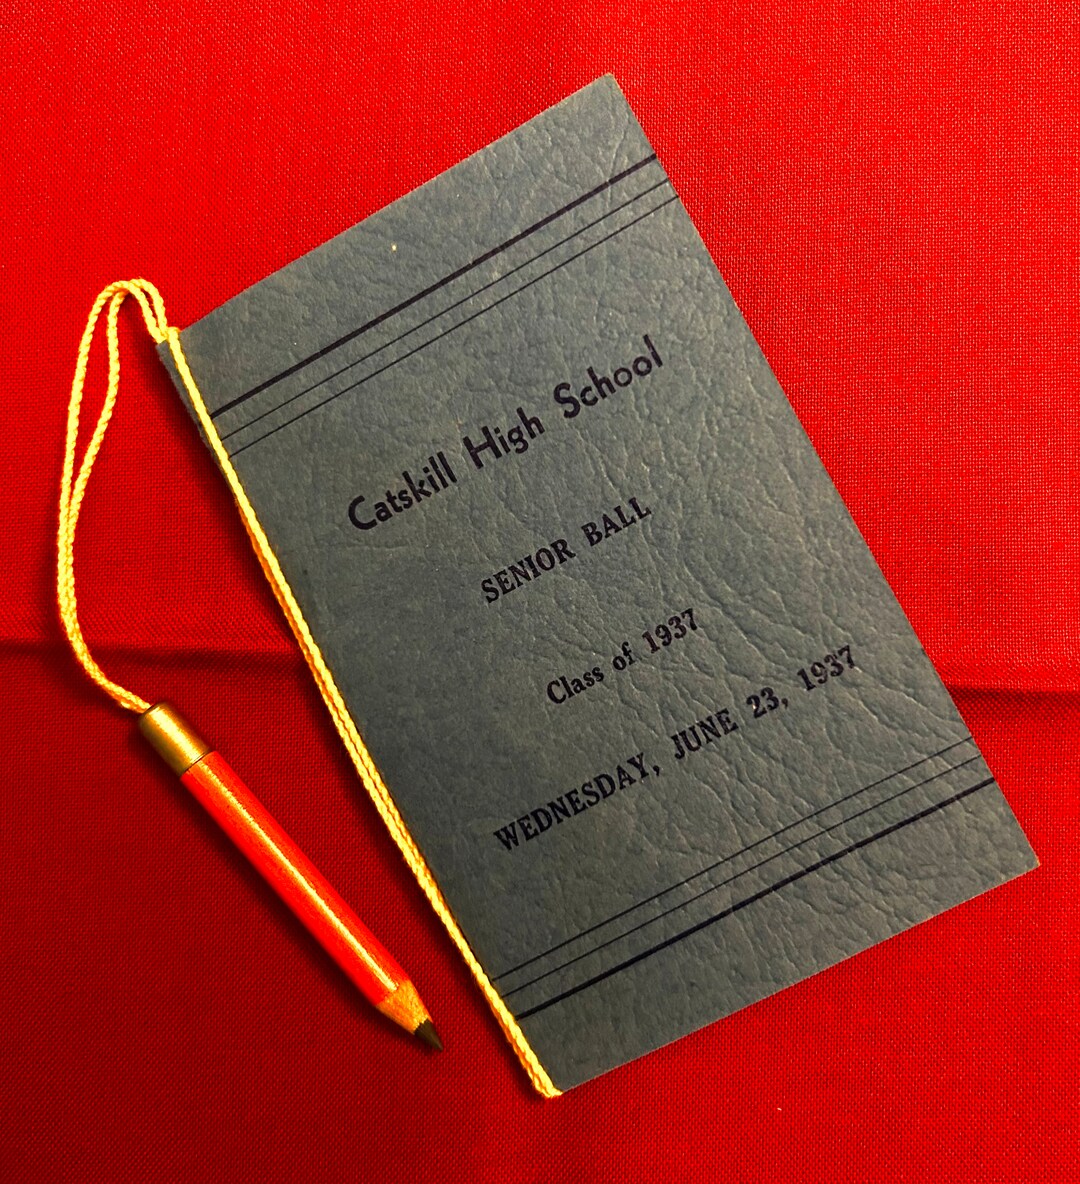 Catskill High School
SENIOR BALL
Class of 1937
WEDNESDAY, JUNE 23, 1937